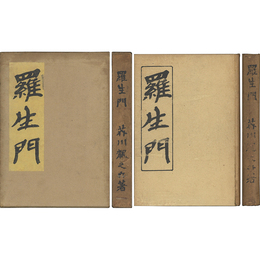 羅生門
羅生門 芥川龍之介著
羅生門
羅生門 芥川